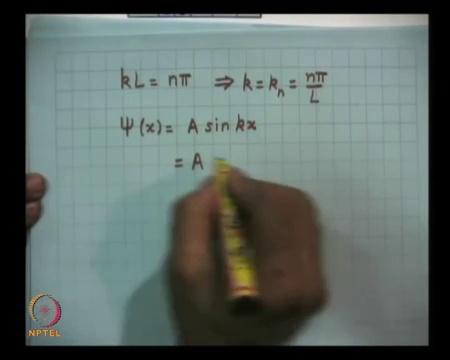 kL = nπ ⇒ k = kₙ = nπ/L
Ψ(x) = A sin kx
= A
NPTEL